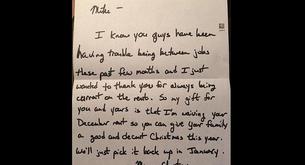 Mike -
I know you guys have been
having trouble being between jobs
these past few months and I just
wanted to thank you for always being
current on the rent. So my gift for
you and yours is that I'm waiving your
December rent so you can give your family
a good and decent Christmas this year.
We'll just pick it back up in January.